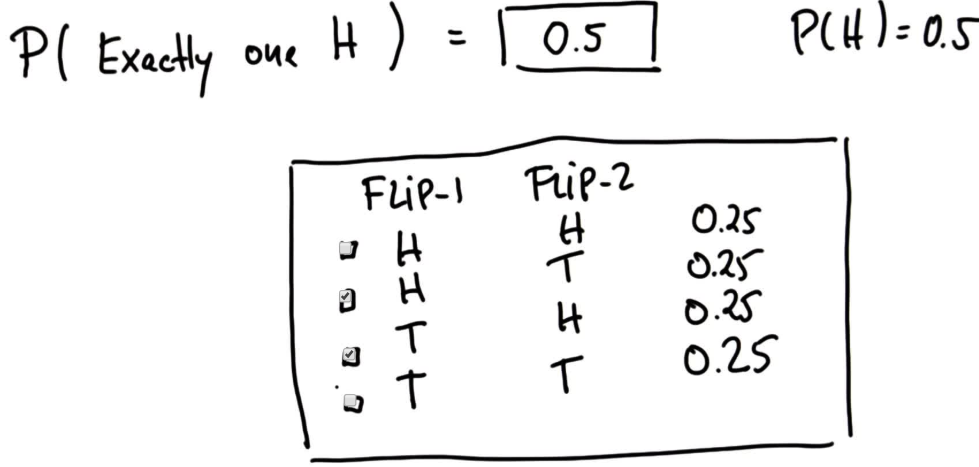 P( Exactly one H ) = 0.5 P(H)=0.5
FLiP-1 FLiP-2
H H 0.25
H T 0.25
T H 0.25
T T 0.25